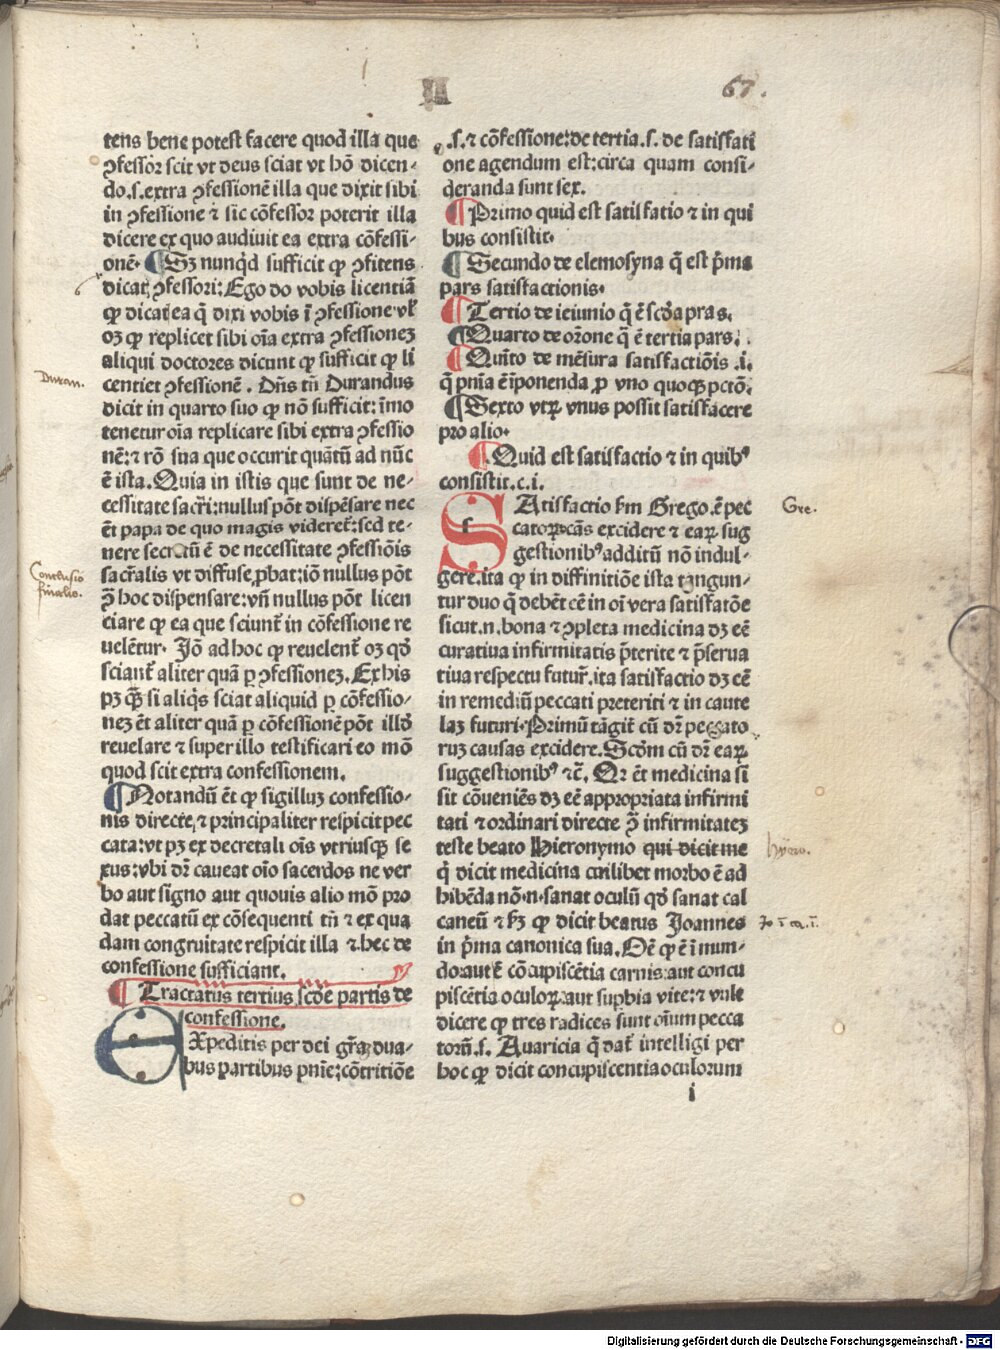 II
67.
tens bene potest facere quod illa que
ꝯfessor scit vt deus sciat vt hō dicen-
do.s.extra ꝯfessionē illa que dixit sibi
in ꝯfessione ⁊ sic cōfessor poterit illa
dicere ex quo audiuit ea extra cōfessi-
onē. ¶ Sꝫ nunqͥd sufficit ꝙ ꝯfitens
dicat ꝯfessori: Ego do vobis licentiā
ꝙ dicat ea q̄ dixi vobis ī ꝯfessione vł
oꝫ ꝙ replicet sibi oīa extra ꝯfessionez
aliqui doctores dicunt ꝙ sufficit ꝙ li
centiet ꝯfessionē. Dn̄s tn̄ Durandus
dicit in quarto suo ꝙ nō sufficit: īmo
tenetur oīa replicare sibi extra ꝯfessio
nē: ⁊ rō sua que occurit quātū ad nūc
ē ista. Quia in istis que sunt de ne-
cessitate sacr̄i: nullus pōt dispēsare nec
ēt papa de quo magis videret᷑: sed te-
nere secretū ē de necessitate ꝯfessiōis
sacr̄alis vt diffuse ꝓbat: iō nullus pōt
ꝑ̄ hoc dispensare: vn̄ nullus pōt licen
ciare ꝙ ea que sciunt᷑ in cōfessione re
uelētur. Iō ad hoc ꝙ reuelent᷑ oꝫ qd̓
sciant᷑ aliter quā ꝑ ꝯfessionez. Ex his
pꝫ ꝙ si aliqͥs sciat aliquid ꝑ cōfessio-
nez ēt aliter quā ꝑ cōfessionē pōt illd̓
reuelare ⁊ super illo testificari eo mō
quod scit extra confessionem.
¶ Notandū ēt ꝙ sigilluz confessio-
nis directe ⁊ principaliter respicit pec
cata: vt pꝫ ex decretali oīs vtriusqꝫ se
xus: vbi dr̄ caueat oīo sacerdos ne ver
bo aut signo aut quouis alio mō pro
dat peccatū ex cōsequenti tn̄ ⁊ ex qua
dam congruitate respicit illa ⁊ hec de
confessione sufficiant.
¶ Tractatus tertius scd̓e partis de
confessione.
EXpeditis per dei grāz dua-
bus partibus pn̄ie: cōtritiōe
.s. ⁊ cōfessione: de tertia .s. de satisfati
one agendum est: circa quam consi-
deranda sunt sex.
¶ Primo quid est satisfatio ⁊ in qui
bus consistit.
¶ Secundo de elemosyna q̄ est p̄ma
pars satisfactionis.
¶ Tertio de ieiunio q̄ ē scd̓a pras.
¶ Quarto de orōne q̄ ē tertia pars.
¶ Quīto de mēsura satisfactiōis .i.
q̄ pn̄ia ē īponenda ꝓ vno quoqꝫ pctō.
¶ Sexto vtꝝ vnus possit satisfacere
pro alio.
¶ Quid est satisfactio ⁊ in quibꝰ
consistit. c. i.
SAtisfactio fm Grego. ē pec
catoꝝ cās excidere ⁊ eaꝝ sug
gestionibꝰ additū nō indul-
gere. ita ꝙ in diffinitiōe ista tangun-
tur duo q̄ debēt eē in oī vera satisfatōe
sicut.n. bona ⁊ ꝯpleta medicina dꝫ eē
curatiua infirmitatis p̄terite ⁊ p̄serua
tiua respectu futur̄. ita satisfactio dꝫ eē
in remediū peccati preteriti ⁊ in caute
laz futuri. Primū tāgit᷑ cū dr̄ peccato
ruz causas excidere. Scd̓m cū dr̄ eaꝝ
suggestionibꝰ ⁊c̄. Qr ēt medicina si
sit cōueniēs dꝫ eē appropriata infirmi
tati ⁊ ordinari directe ꝑ̄ infirmitatez
teste beato Hieronymo qui dicit me
q̄ dicit medicina cuilibet morbo ē ad
hibēda nō.n. sanat oculū qd̓ sanat cal
caneū ⁊ fꝫ ꝙ dicit beatus Joannes
in p̄ma canonica sua. Oē ꝙ ē ī mun-
do: aut ē cōcupiscētia carnis: aut concu
piscētia oculoꝝ aut supbia vite: ⁊ vule
dicere ꝙ tres radices sunt oīum pecca
torū. s. Auaricia q̄ dat᷑ intelligi per
hoc ꝙ dicit concupiscentia oculorum
i
Duran.
Conclusio
finalis.
Gre.
Hyero.
Digitalisierung gefördert durch die Deutsche Forschungsgemeinschaft - DFG